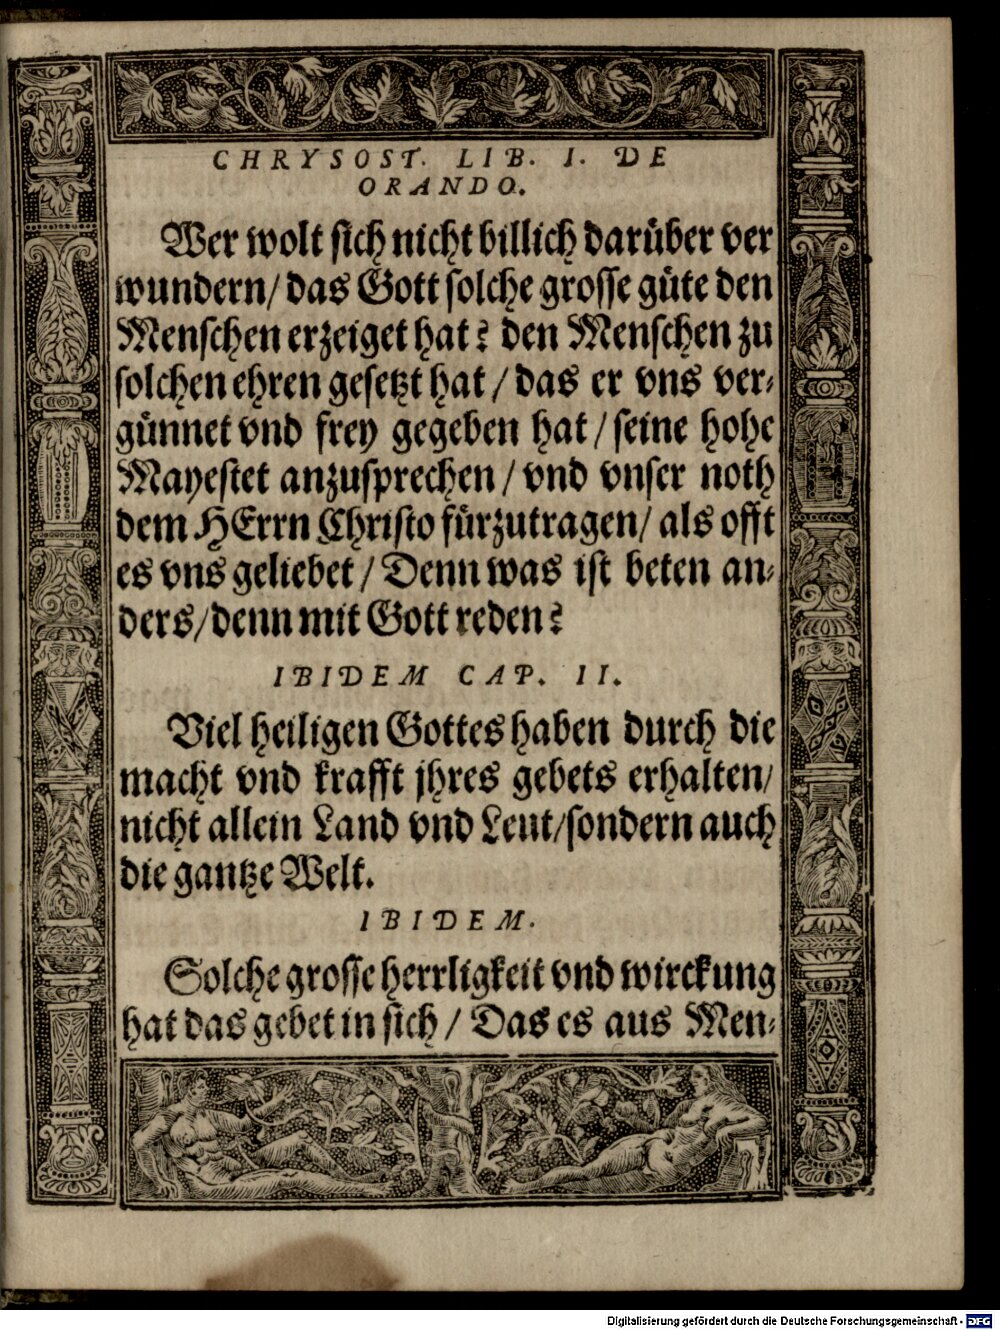 CHRYSOST. LIB. I. DE
ORANDO.
Wer wolt sich nicht billich darüber ver
wundern/ das Gott solche grosse güte den
Menschen erzeiget hat? den Menschen zu
solchen ehren gesetzt hat / das er vns ver-
günnet vnd frey gegeben hat / seine hohe
Mayestet anzusprechen / vnd vnser noth
dem HErrn Christo fürzutragen/ als offt
es vns geliebet / Denn was ist beten an-
ders/denn mit Gott reden?
IBIDEM CAP. II.
Viel heiligen Gottes haben durch die
macht vnd krafft jhres gebets erhalten/
nicht allein Land vnd Leut/sondern auch
die gantze Welt.
IBIDEM.
Solche grosse herrligkeit vnd wirckung
hat das gebet in sich / Das es aus Men-
Digitalisierung gefördert durch die Deutsche Forschungsgemeinschaft - DFG